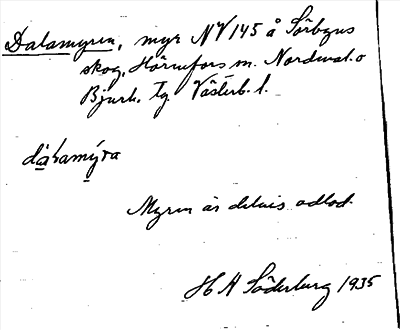 Dalamyren, myr NV 145 å Sörbyns
skog, Hörnefors m. Nordmal. o
Bjurh. tg. Västerb. l.
dálamýra
Myren är delvis odlad.
H A Söderberg 1935